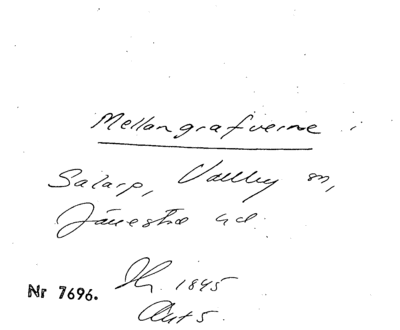 Mellangrafverne i
Salarp, Vallby sn,
Järrestad hd.
Nr 7696.
1845